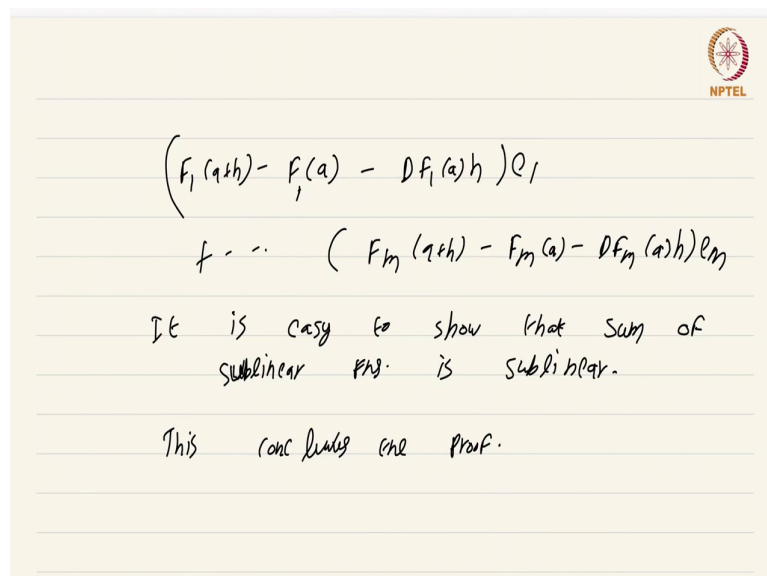 NPTEL
(F₁(a+h) - F₁(a) - DF₁(a)h)e₁
+ - .. (Fₘ(a+h) - Fₘ(a) - DFₘ(a)h)eₘ
It is easy to show that sum of
sublinear Fns. is sublinear.
This concludes the proof.